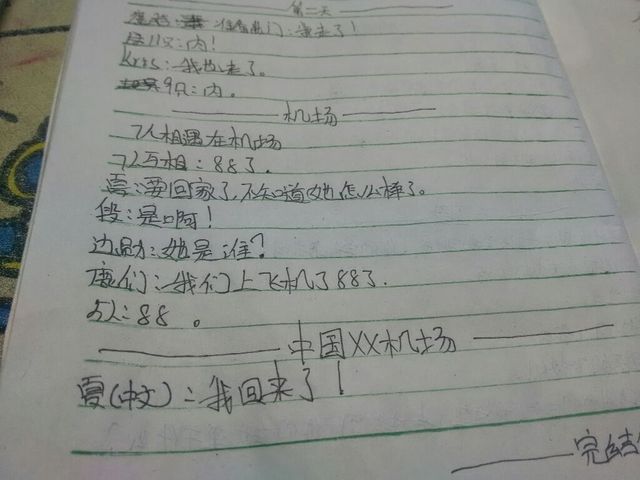 第二天
准备出门:我走了!
内!
Kris:我也走了。
内。
机场
7人相遇在机场
7人互相:883.
夏:要回家了,不知道她怎么样了。
段:是啊!
边勋:她是谁?
鹿们:我们上飞机了883.
5人:88。
中国XX机场
夏(中文):我回来了!
完结